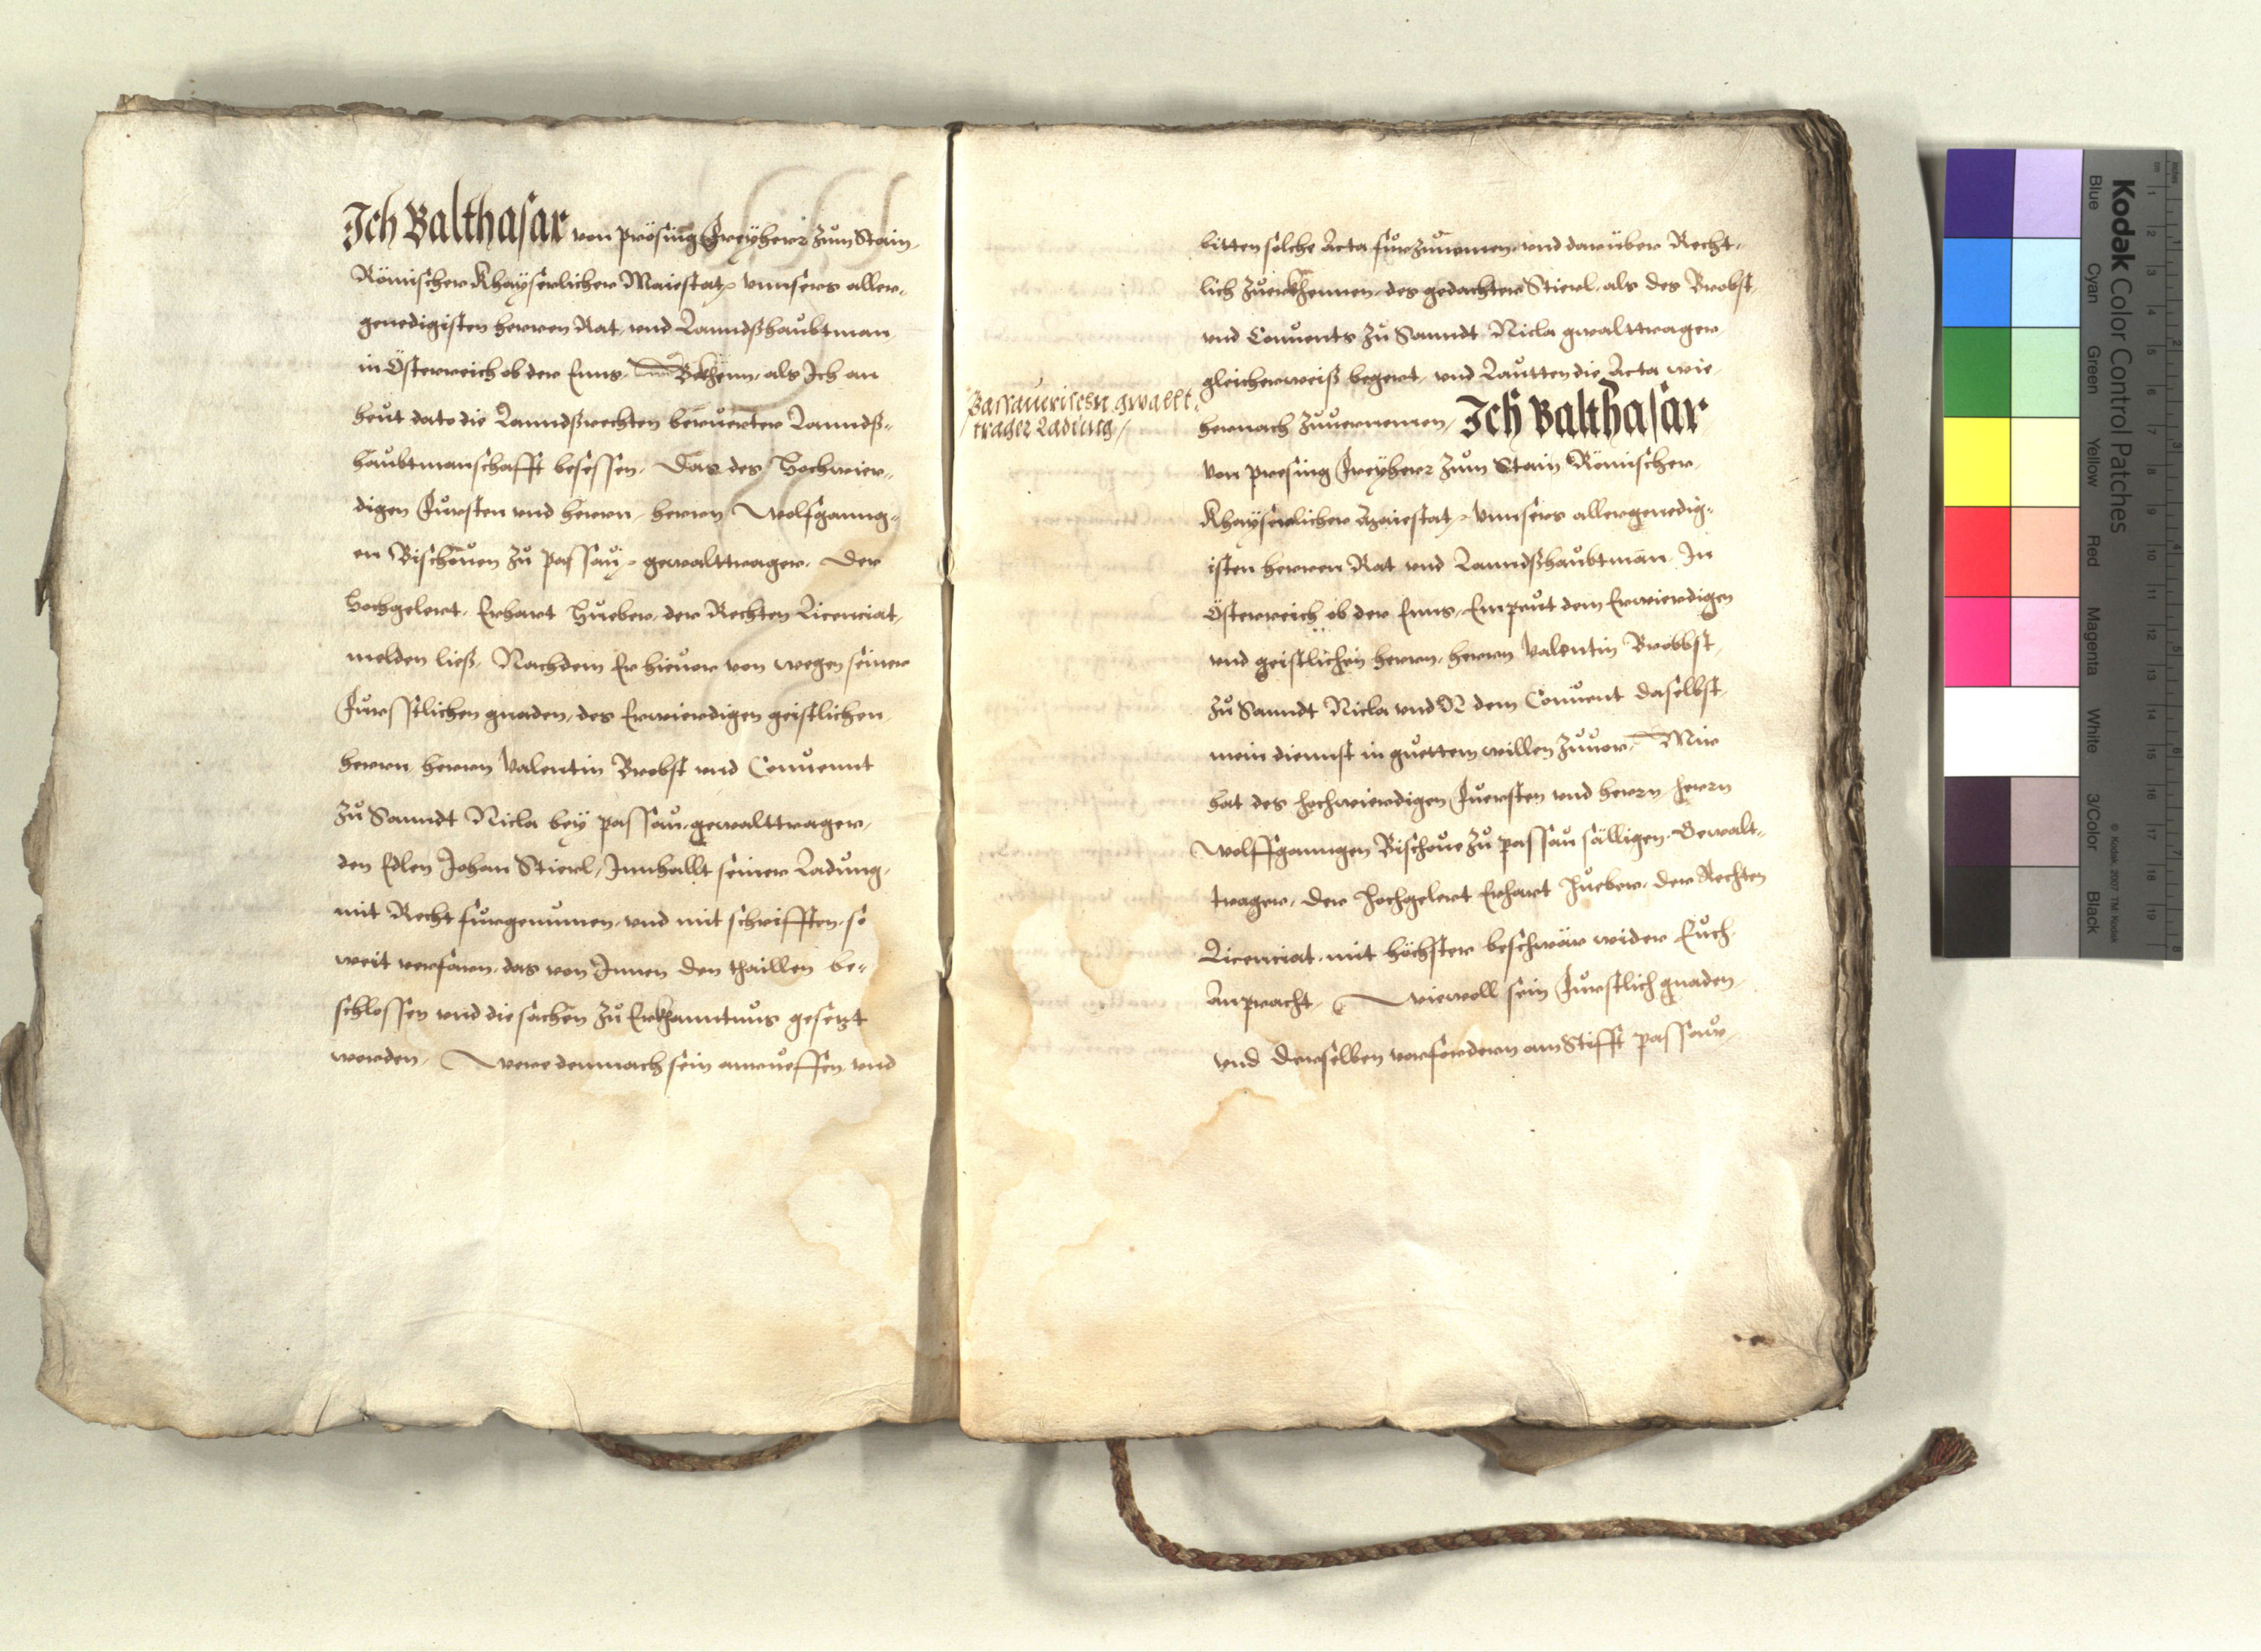 Ich Balthasar von Prösing Freyherr zům Stain,
Römischer Khayserlicher Maiestat, vnnsers aller,
genedigisten herren Rat, vnd Lanndßhaůbtman
in Österreich ob der Enns, Bekhenn, als Ich an
heůt dato die Lanndßrechten berůerter Lanndß„
haůbtmanschafft besessen, Das des Hochwier„
digen Fůrsten vnd herrn, herrn Wolfganng„
en Bischoůen zů Passaů, gewalttrager, Der
Hochgelert, Erhart Hůeber, der Rechten Licenciat,
melden ließ, Nachdem Er hieůor von wegen seiner
Fůrsstlichen gnaden, des Erwierdigen geistlichen
herrn, herrn Valentin Brobst vnd Conůennt
zů Sanndt Nicla bey Passaů, gewalttrager,
den Edlen Johan Stierl, Innhallt seiner Ladůng,
mit Recht fůrgenůmen, vnd mit schrifften, so
weit verfarn, das von Innen den thaillen be„
schlossen vnd die sachen zů Erkhanntnůs gesetzt
worden, Were demnach sein anrůeffen, vnd
bitten solche Acta fůrzůnemen, vnd darüber Recht,
lich zůerkhennen, des gedachter Stierl, als des Brobst,
vnd Conůents zů Sanndt Nicla gwalttrager,
gleicherweiß begert, vnd Laůtten die Acta wie
Passauerischn gwallt,
trager Ladung /
hernach zůůernemen, Ich Balthasar
von Presing Freyherr zům Stain Römischer,
Khayserlicher Maiestat, vnnsers allergenedig„
isten herren Rat vnd Lanndßhaůbtman, In
Österreich ob der Enns, Empeůt dem Erwierdigen
vnd geistlichen herrn, herrn Valentin Brobbst,
zů Sanndt Nicla vnd N dem Conůent daselbst,
mein diennst in gůettem willen zůůor, Mir
hat des hochwierdigen Fůersten vnd herrn, herrn
Wolffganngen Bischoůe zů Passaů sälligen, Gewalt„
trager, der hochgelert Erhart Hůeber, der Rechten
Licenciat, mit höchster beschwär wider Eůch
anpracht, Wiewoll sein Fůrstlich gnaden,
vnd derselben vorfordern am Stifft Passaů,
Kodak Color Control Patches
Blue
Cyan
Green
Yellow
Red
Magenta
White
3/Color
Black
© Kodak, 2007 TM: Kodak